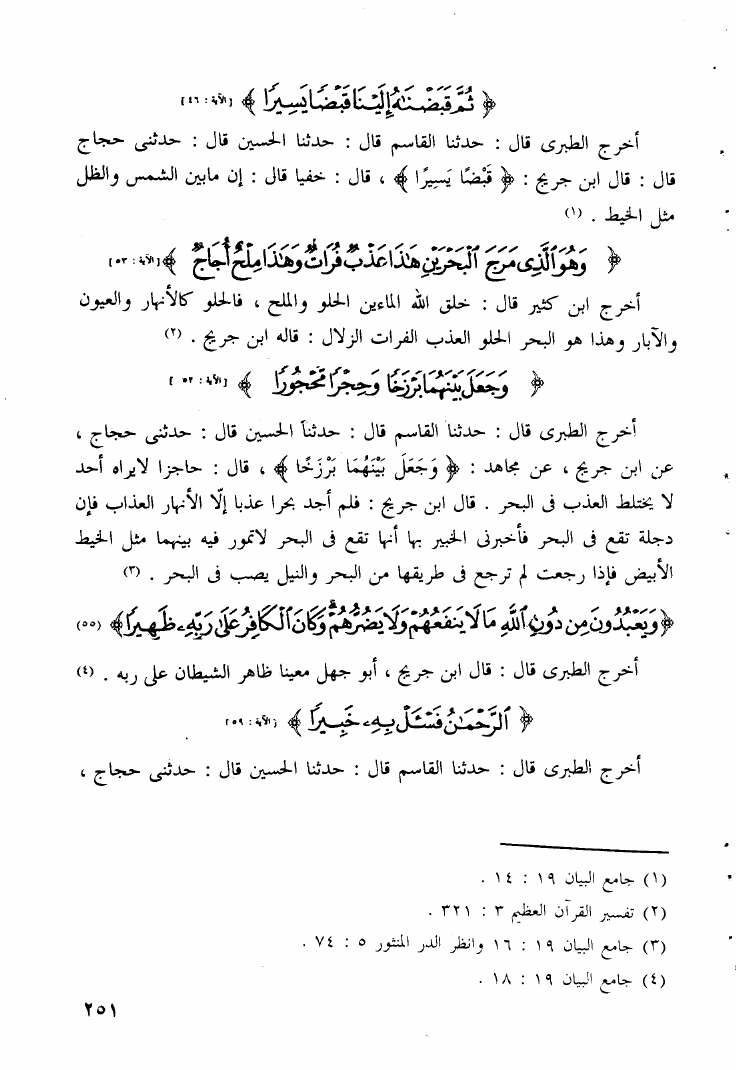 ﴿ ثُمَّ قَبَضْنَاهُ إِلَيْنَا قَبْضًا يَسِيرًا ﴾ [الآية : ٤٦]
أخرج الطبرى قال : حدثنا القاسم قال : حدثنا الحسين قال : حدثنى حجاج
قال : قال ابن جريج : ﴿ قَبْضًا يَسِيرًا ﴾ ، قال : خفيا قال : إن مابين الشمس والظل
مثل الخيط . (١)
﴿ وَهُوَ الَّذِى مَرَجَ الْبَحْرَيْنِ هَٰذَا عَذْبٌ فُرَاتٌ وَهَٰذَا مِلْحٌ أُجَاجٌ ﴾ [الآية : ٥٣]
أخرج ابن كثير قال : خلق الله الماءين الحلو والملح ، فالحلو كالأنهار والعيون
والآبار وهذا هو البحر الحلو العذب الفرات الزلال : قاله ابن جريج . (٢)
﴿ وَجَعَلَ بَيْنَهُمَا بَرْزَخًا وَحِجْرًا مَّحْجُورًا ﴾ [الآية : ٥٣ ]
أخرج الطبرى قال : حدثنا القاسم قال : حدثنا الحسين قال : حدثنى حجاج ،
عن ابن جريج ، عن مجاهد : ﴿ وَجَعَلَ بَيْنَهُمَا بَرْزَخًا ﴾ ، قال : حاجزا لايراه أحد
لا يختلط العذب فى البحر . قال ابن جريج : فلم أجد بحرا عذبا إلّا الأنهار العذاب فإن
دجلة تقع فى البحر فأخبرنى الخبير بها أنها تقع فى البحر لاتمور فيه بينهما مثل الخيط
الأبيض فإذا رجعت لم ترجع فى طريقها من البحر والنيل يصب فى البحر . (٣)
﴿ وَيَعْبُدُونَ مِن دُونِ اللَّهِ مَا لَا يَنفَعُهُمْ وَلَا يَضُرُّهُمْ وَكَانَ الْكَافِرُ عَلَىٰ رَبِّهِ ظَهِيرًا ﴾ (٥٥)
أخرج الطبرى قال : قال ابن جريج ، أبو جهل معينا ظاهر الشيطان على ربه . (٤)
﴿ الرَّحْمَٰنُ فَسْـَٔلْ بِهِ خَبِيرًا ﴾ [الآية : ٥٩]
أخرج الطبرى قال : حدثنا القاسم قال : حدثنا الحسين قال : حدثنى حجاج ،
(١) جامع البيان ١٩ : ١٤ .
(٢) تفسير القرآن العظيم ٣ : ٣٢١ .
(٣) جامع البيان ١٩ : ١٦ وانظر الدر المنثور ٥ : ٧٤ .
(٤) جامع البيان ١٩ : ١٨ .
٢٥١